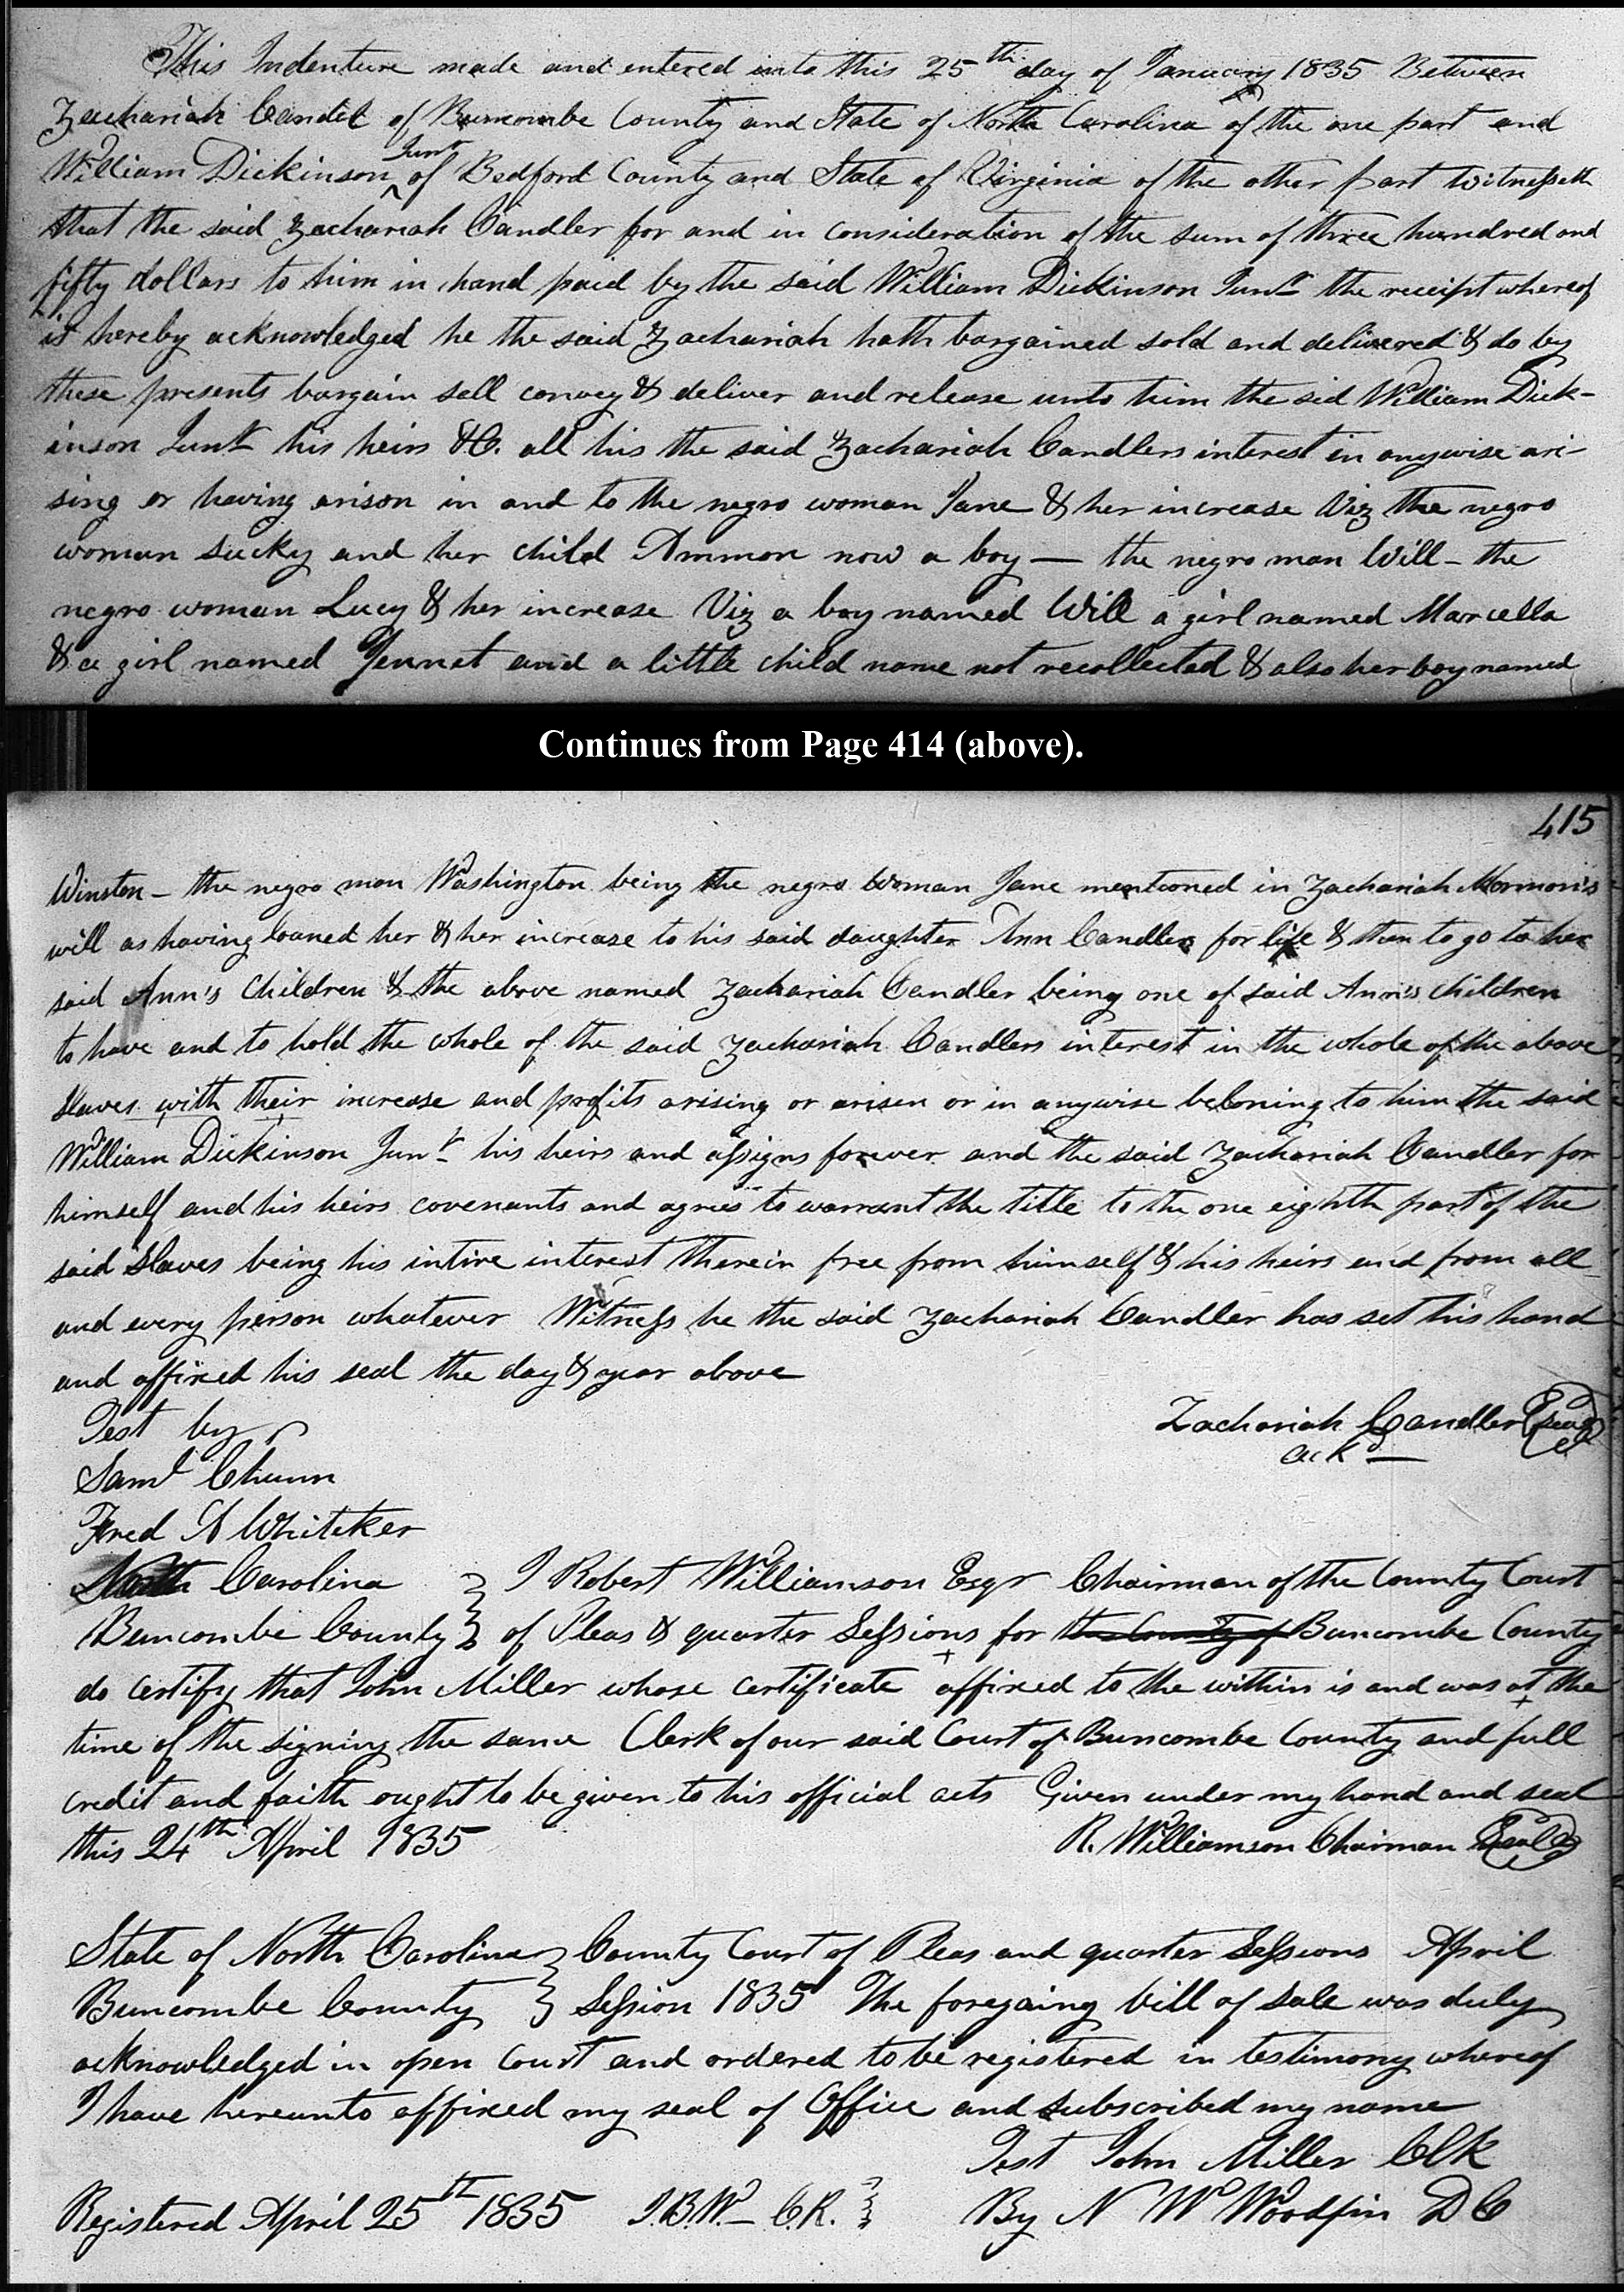 This Indenture made and entered into this 25th day of January 1835 Between
Zachariah Candel of Buncombe County and State of North Carolina of the one part and
William Dickinson Junr of Bedford County and State of Virginia of the other part witnesseth
that the said Zachariah Candler for and in consideration of the sum of three hundred and
fifty dollars to him in hand paid by the said William Dickinson Junr the receipt whereof
is hereby acknowledged he the said Zachariah hath bargained sold and delivered & do by
these presents bargain sell convey & deliver and release unto him the sid William Dick-
inson Junr his heirs &C. all his the said Zachariah Candlers interest in anywise ari-
sing or having arison in and to the negro woman Jane & her increase Viz the negro
woman Sucky and her child Ammon now a boy — the negro man Will - the
negro woman Lucy & her increase Viz a boy named Will a girl named Marcella
& a girl named Jennet and a little child name not recollected & also her boy named
Continues from Page 414 (above).
415
Winston - the negro man Washington being the negro woman Jane mentioned in Zachariah Mormon's
will as having loaned her & her increase to his said daughter Ann Candler for life & then to go to her
said Ann's Children & the above named Zachariah Candler being one of said Ann's children
to have and to hold the whole of the said Zachariah Candlers interest in the whole of the above
slaves with their increase and profits arising or arisen or in anywise beloning to him the said
William Dickinson Junr his heirs and assigns forever and the said Zachariah Candler for
himself and his heirs covenants and agrees to warrant the title to the one eighth part of the
said slaves being his intire interest therein free from himself & his heirs and from all
and every person whatever Witness he the said Zachariah Candler has set his hand
and affixed his seal the day & year above
Test by Zachariah Candler (seal)
Saml Chunn ackd —
Fred A Whiteker
North Carolina } I Robert Williamson Esqr Chairman of the County Court
Buncombe County } of Pleas & quarter Sessions for the County of Buncombe County
do certify that John Miller whose certificate affixed to the within is and was at the
time of the signing the same Clerk of our said Court of Buncombe County and full
credit and faith ought to be given to his official acts Given under my hand and seal
this 24th April 1835 R. Williamson Chairman (Seal)
State of North Carolina } County Court of Pleas and quarter Sessions April
Buncombe County } Session 1835 The foregoing bill of sale was duly
acknowledged in open Court and ordered to be registered in testimony whereof
I have hereunto affixed my seal of Office and subscribed my name
Test John Miller Clk
Registered April 25th 1835 J.B.W. - C.R. } By N W Woodfin D C